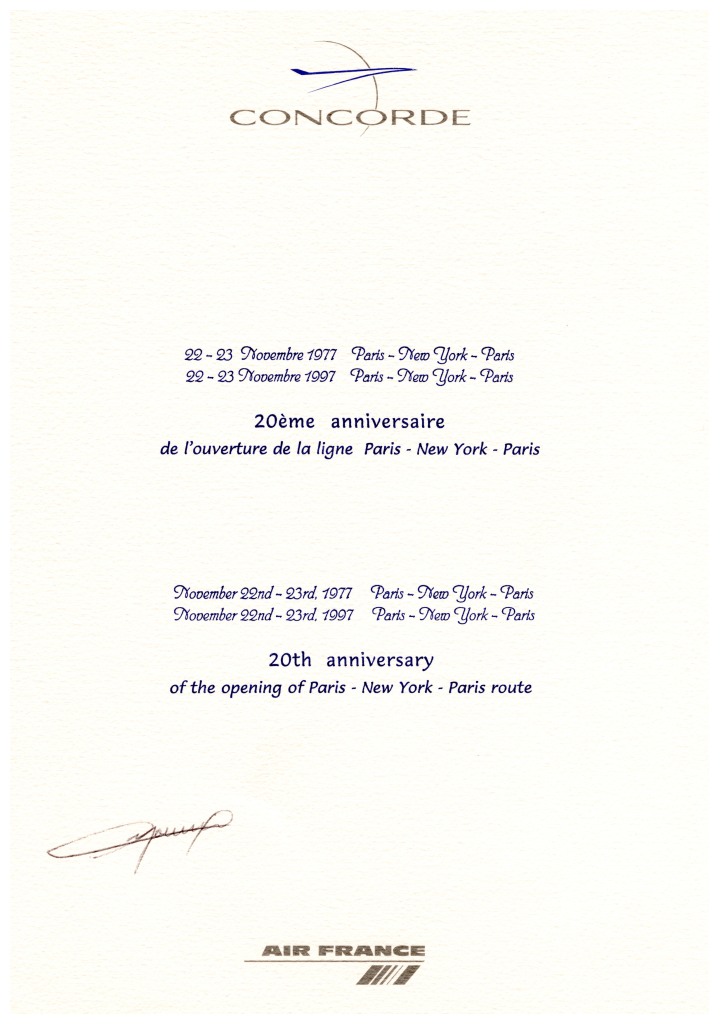 CONCORDE
22 - 23 Novembre 1977 Paris - New York - Paris
22 - 23 Novembre 1997 Paris - New York - Paris
20ème anniversaire
de l'ouverture de la ligne Paris - New York - Paris
November 22nd - 23rd, 1977 Paris - New York - Paris
November 22nd - 23rd, 1997 Paris - New York - Paris
20th anniversary
of the opening of Paris - New York - Paris route
AIR FRANCE